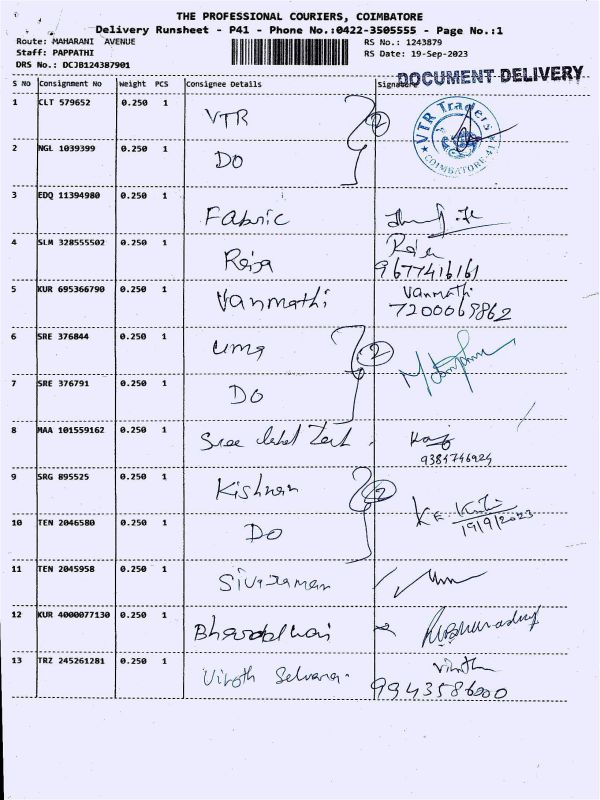 THE PROFESSIONAL COURIERS, COIMBATORE
Delivery Runsheet - P41 - Phone No.:0422-3505555 - Page No.:1
Route: MAHARANI AVENUE
RS No.: 1243879
Staff: PAPPATHI
RS Date: 19-Sep-2023
DRS No.: DCJB124387901
DOCUMENT DELIVERY
S NO Consignment No Weight PCS Consignee Details Signature
1 CLT 579652 0.250 1 VTR 2 VTR Traders COIMBATORE-41
2 NGL 1039399 0.250 1 DO
3 EDQ 11394980 0.250 1 Fabric
4 SLM 328555502 0.250 1 Reja
9677416161
5 KUR 695366790 0.250 1 Vanmathi Vanmathi
7200069862
6 SRE 376844 0.250 1 uma 2
7 SRE 376791 0.250 1 DO
8 MAA 101559162 0.250 1 Sree label
9381746924
9 SRG 895525 0.250 1 Kishnan 2
19/9/2023
10 TEN 2046580 0.250 1 DO
11 TEN 2045958 0.250 1 Sivaraman
12 KUR 4000077130 0.250 1
13 TRZ 245261281 0.250 1
9943586000